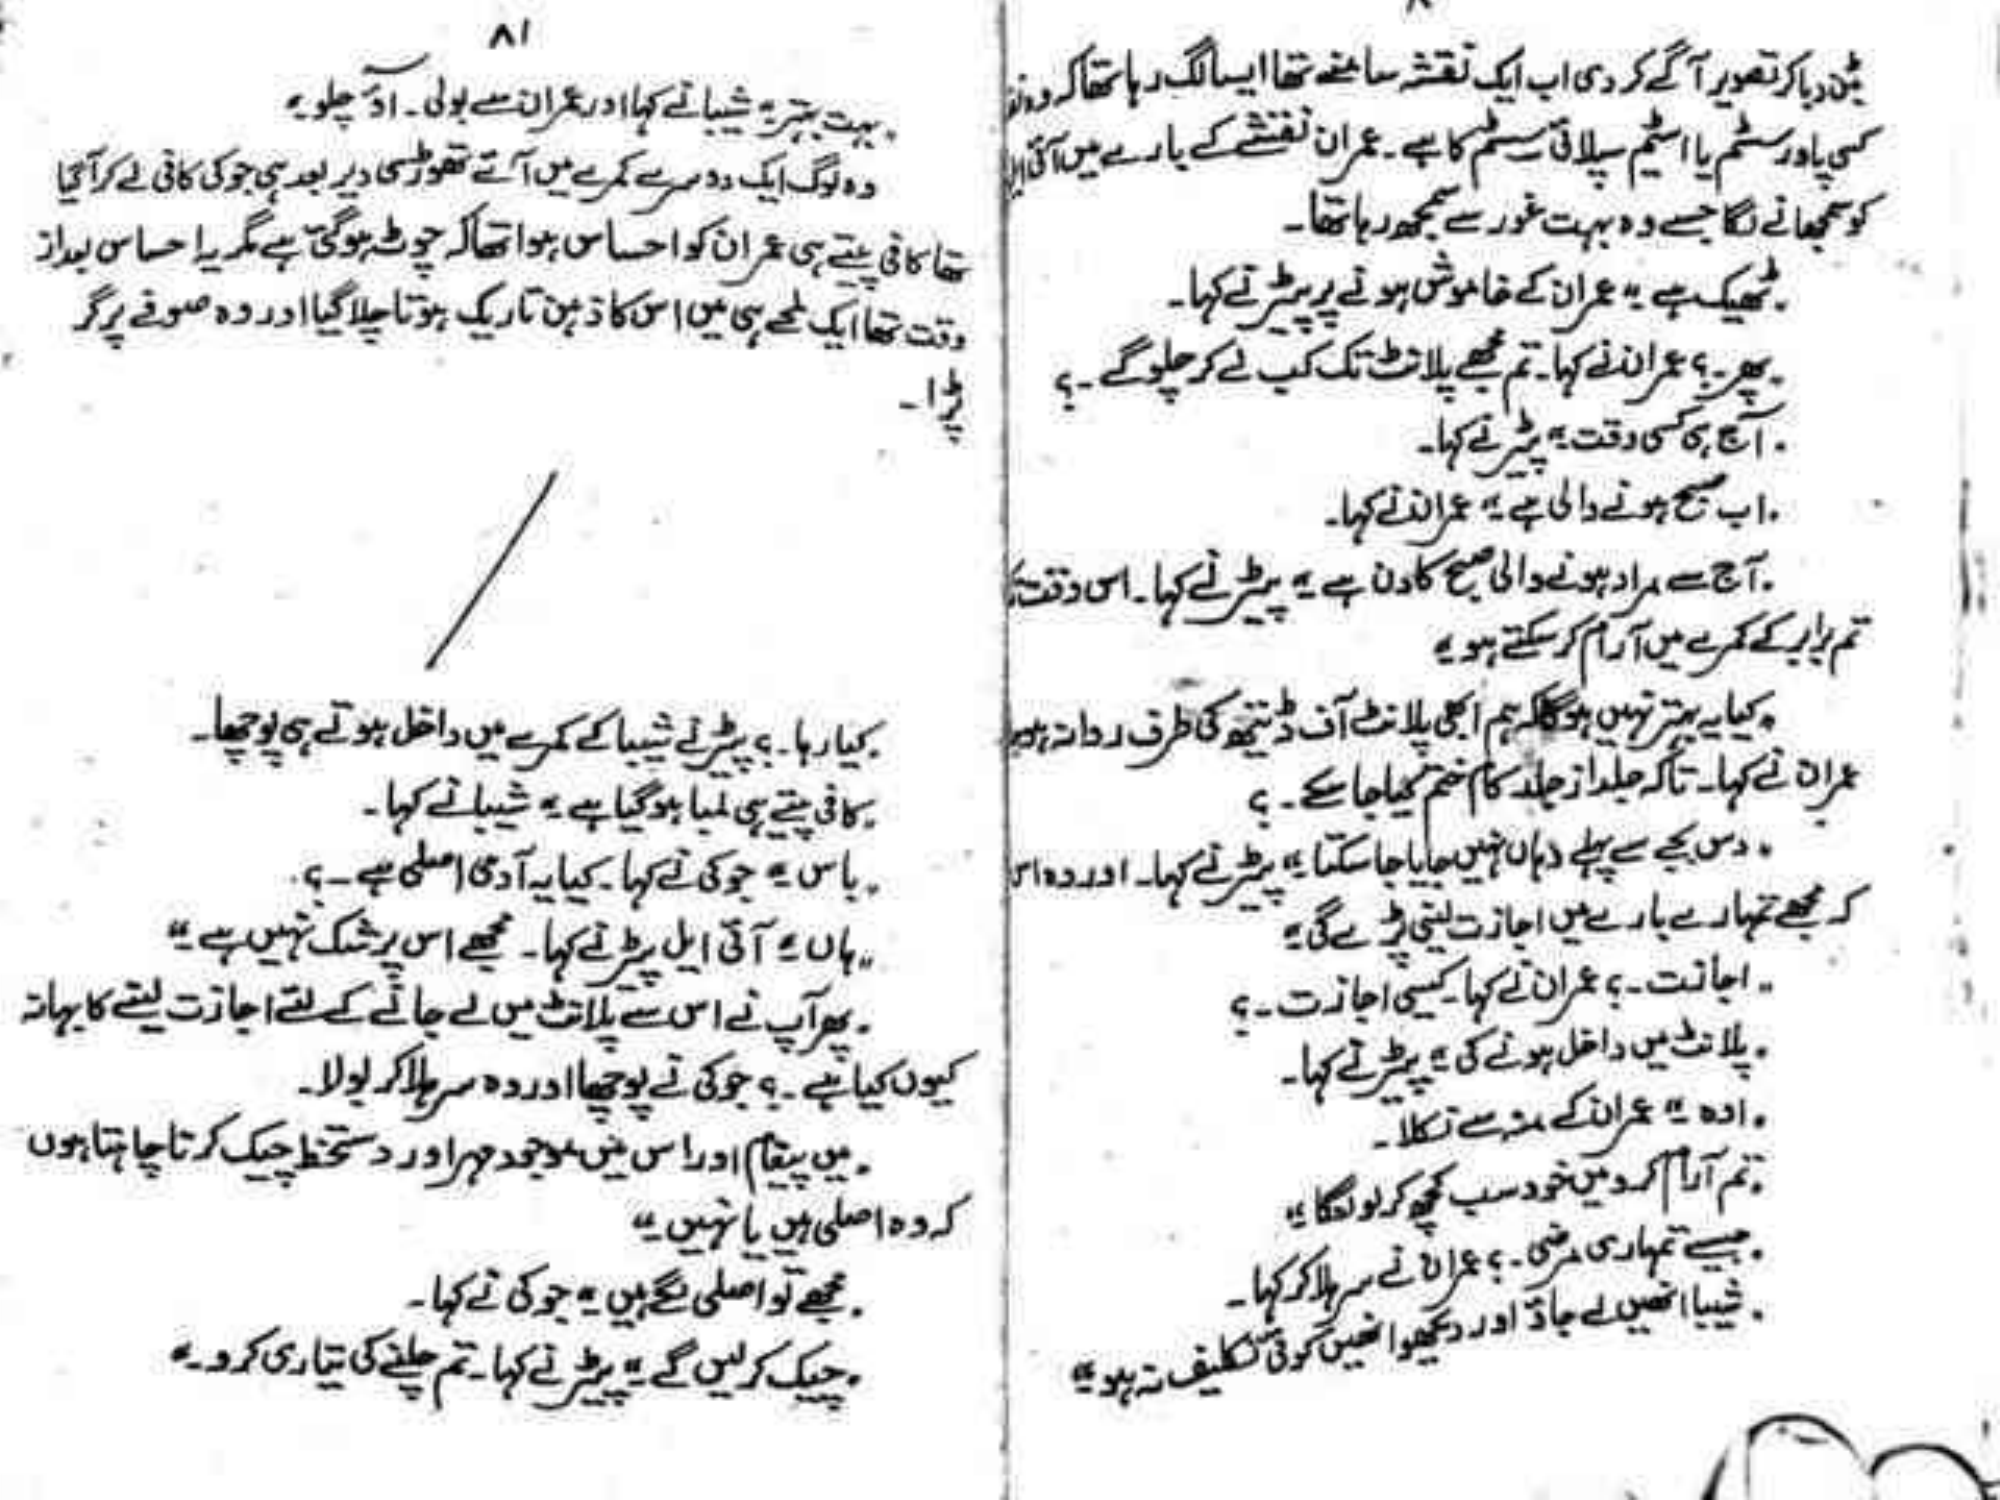 بٹن دبا کر تصویر آگے کر دی اب ایک نقشہ سامنے تھا ایسا لگ رہا تھا کہ وہ
کسی پاور سٹم یا اسٹیم سپلائی سسٹم کا ہے۔ عمران نقشے کے بارے میں آئی
کو سمجھانے لگا جسے وہ بہت غور سے سمجھ رہا تھا۔
. ٹھیک ہے " عمران کے خاموش ہونے پر پیٹر نے کہا۔
. پھر۔؟ عمران نے کہا۔ تم مجھے پلانٹ تک کب لے کر چلو گے ۔؟
. آج ہی کسی وقت " پیٹر نے کہا۔
. اب صبح ہونے والی ہے " عمران نے کہا۔
. آج سے مراد ہونے والی صبح کا دن ہے " پیٹر نے کہا۔ اس وقت
تم برابر کے کمرے میں آرام کر سکتے ہو "
. کیا یہ بہتر نہیں ہو گا کہ ہم ابھی پلانٹ آف ڈیتھ کی طرف روانہ
عمران نے کہا۔ تاکہ جلد از جلد کام ختم کیا جا سکے ۔؟
. دس بجے سے پہلے وہاں نہیں جایا جا سکتا " پیٹر نے کہا۔ اور وہ
کہ مجھے تمہارے بارے میں اجازت لینی پڑے گی "
" اجازت ۔؟ عمران نے کہا۔ کیسی اجازت ۔؟
. پلانٹ میں داخل ہونے کی " پیٹر نے کہا۔
. اوہ " عمران کے منہ سے نکلا۔
. تم آرام کرو میں خود سب کچھ کر لوں گا "
. جیسے تمہاری مرضی ۔؟ عمران نے سر ہلا کر کہا۔
. شیبا انھیں لے جاؤ اور دیکھو انھیں کوئی تکلیف نہ ہو "
۸۱
. بہت بہتر " شیبا نے کہا اور عمران سے بولی ۔ آؤ چلو "
وہ لوگ ایک دوسرے کمرے میں آئے تھوڑی سی دیر بعد ہی جوکی کافی لے کر آ گیا
تھا کافی پیتے ہی عمران کو احساس ہوا تھا کہ چوٹ ہو گئی ہے مگر یہ احساس بعد از
وقت تھا ایک لمحے ہی میں اس کا ذہن تاریک ہوتا چلا گیا اور وہ صوفے پر گر
پڑا ۔
. کیا رہا ۔؟ پیٹر نے شیبا کے کمرے میں داخل ہوتے ہی پوچھا۔
. کافی پیتے ہی لمبا ہو گیا ہے " شیبا نے کہا ۔
. باس " جوکی نے کہا ۔ کیا یہ آدمی اصلی ہے ۔؟
" ہاں " آئی ایل پیٹر نے کہا ۔ مجھے اس پر شک نہیں ہے "
. پھر آپ نے اس سے پلانٹ میں لے جانے کے لئے اجازت لینے کا بہانہ
کیوں کیا ہے ۔؟ جوکی نے پوچھا اور وہ سر ہلا کر بولا۔
. میں پیغام اور اس میں موجود مہر اور دستخط چیک کرنا چاہتا ہوں
کہ وہ اصلی ہیں یا نہیں "
. مجھے تو اصلی لگے ہیں " جوکی نے کہا ۔
. چیک کر لیں گے " پیٹر نے کہا۔ تم چلنے کی تیاری کرو ۔"